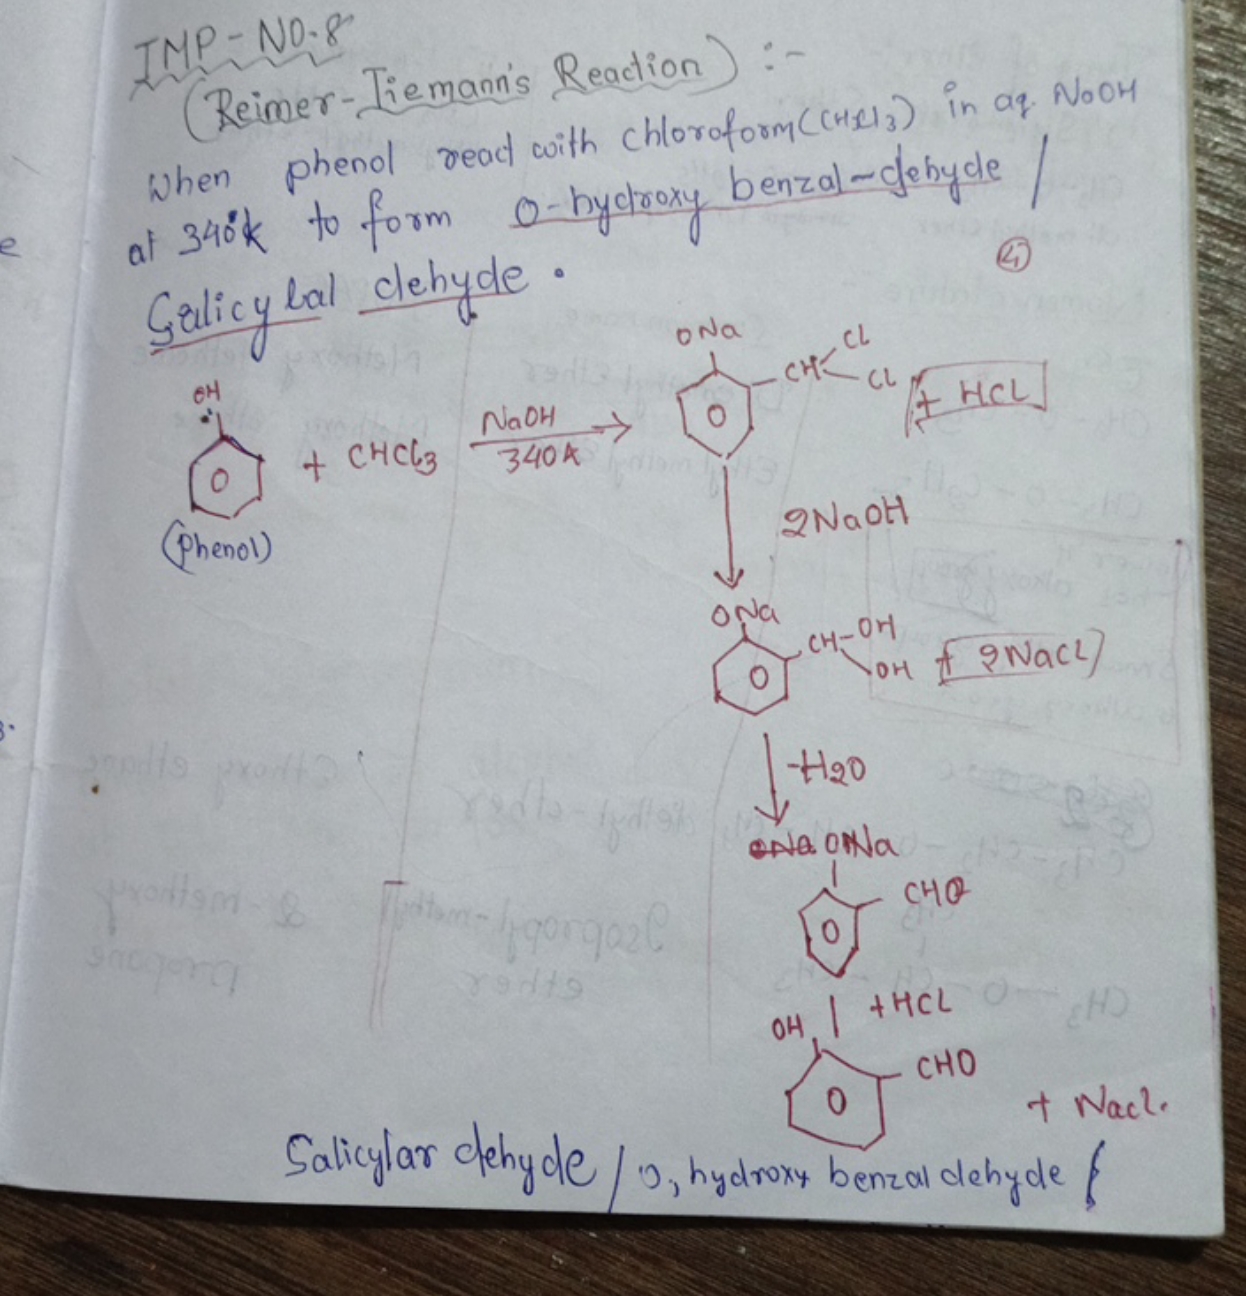 IMP-NO.8
(Reimer-Tiemann's Reaction) :-
When phenol react with chloroform (CHCl3) in aq. NaOH
at 340k to form O-hydroxy benzal-dehyde /
Salicylal dehyde.
4
OH
(Phenol)
+ CHCl3
NaOH
340K
ONa
CH
Cl
Cl
+ HCL
2NaOH
ONa
CH-OH
OH
+ 2NaCl
-H2O
ONa ONa
CHO
+HCL
OH
CHO
+ Nacl.
Salicylar dehyde / O, hydroxy benzal dehyde /